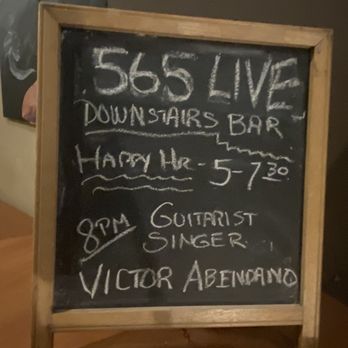 565 LIVE
DOWNSTAIRS BAR
HAPPY HR - 5-7 30
8PM GUITARIST
SINGER
VICTOR ABENDANO